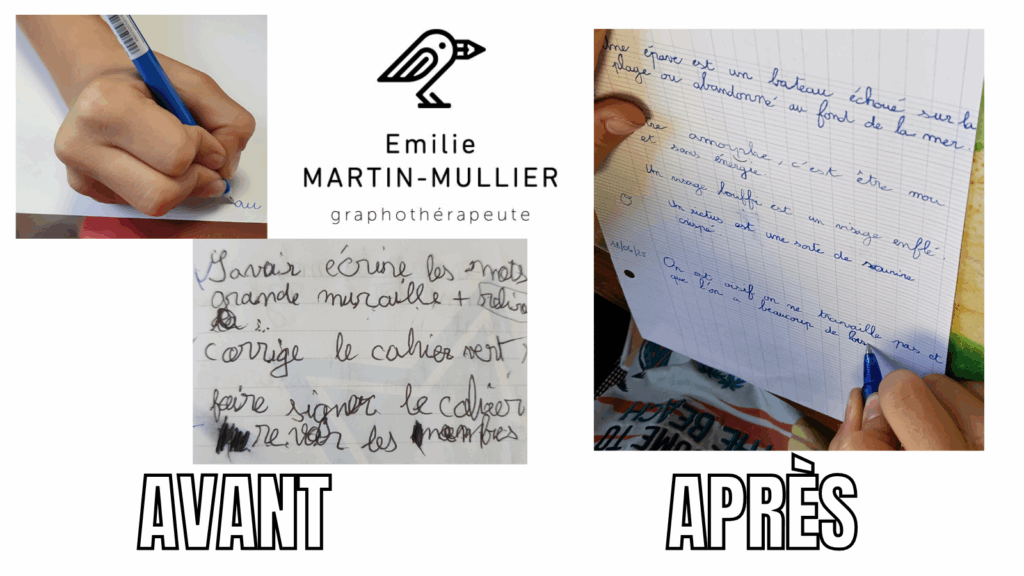 au
Emilie
MARTIN-MULLIER
graphothérapeute
Savoir écrire les mots
grande muraille +
corrige le cahier vert
faire signer le cahier
revoir les nombres
AVANT
Une épave est un bateau échoué sur la
plage ou abandonné au fond de la mer.
être amorphe, c'est être mou
et sans énergie
Un visage bouffi est un visage enflé.
Un rictus est une sorte de sourire
crispé
On est oisif on ne travaille pas et
que l'on a beaucoup de
COME TO
THE BEACH
APRÈS